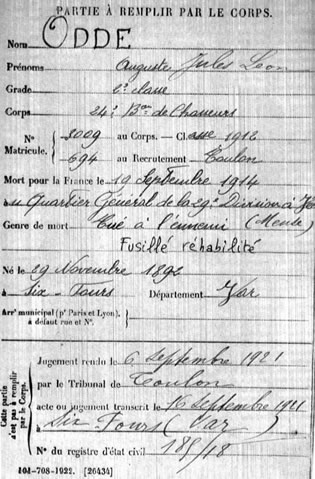 PARTIE À REMPLIR PAR LE CORPS.
Nom ODDE
Prénoms Auguste Jules Léon
Grade 2e classe
Corps 24e Bon de Chasseurs
N° Matricule. 3009 au Corps. — Classe 1912
694 au Recrutement Toulon
Mort pour la France le 19 Septembre 1914
au Quartier Général de la 29e Division à
Genre de mort Tué à l'ennemi (Meuse)
Fusillé réhabilité
Né le 29 Novembre 1892
à Six-Fours Département Var
Arrt municipal (pr Paris et Lyon),
à défaut rue et N°.
Cette partie n'est pas à remplir par le Corps.
Jugement rendu le 6 Septembre 1921
par le Tribunal de Toulon
acte ou jugement transcrit le 16 Septembre 1921
à Six-Fours (Var)
N° du registre d'état civil 185/18
101-708-1922. [26434]